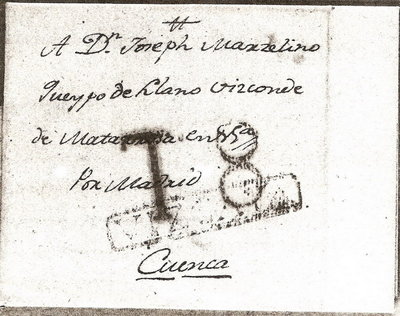 A Dn. Joseph Marzelino
Queypo de Llano Vizconde
de Matarrosa en
Por Madrid
78
Cuenca